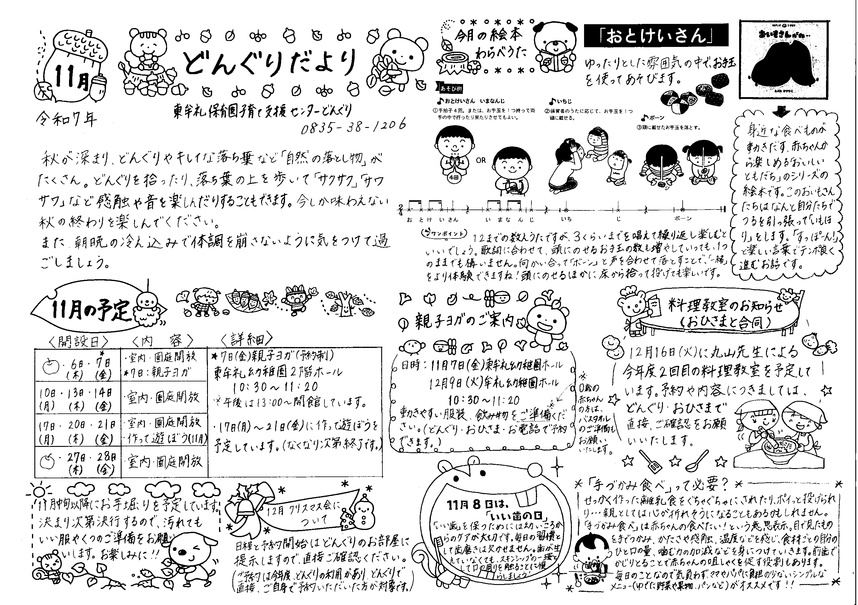 11月
どんぐりだより
令和7年
東牟礼保育園子育て支援センターどんぐり
0835-38-1206
秋が深まり、どんぐりやキレイな落ち葉など「自然の落とし物」が
たくさん。どんぐりを拾ったり、落ち葉の上を歩いて「サクサク」「サワ
サワ」など感触や音を楽しんだりすることもできます。今しか味わえない
秋の終わりを楽しんでください。
また、朝晩の冷え込みで体調を崩さないように気をつけて過
ごしましょう。
今月の絵本
わらべうた
「おとけいさん」
ゆったりとした雰囲気の中で、お手玉
を使ってあそびます。
あそび例
♪おとけいさん いまなんじ
♪いちじ
♪ボーン
OR
おとけいさん いまなんじ いち じ ボーン
ワンポイント
12までの数え うたですが、3くらいまでを唱えて繰り返し楽しむと
いいでしょう。歌詞に合わせて、頭にのせるお手玉の数も増やしていっても、1つ
のままでも構いません。向かい合って「ボーン」と声を合わせて落とすことで、一緒
をより体験できますね!頭にのせるほかに、床から拾って投げても楽しいです。
おいもさんがね‥
身近な食べものが
動きだす、赤ちゃんか
ら楽しめる「おいしい
ともだち」のシリーズの
絵本です。このおいもさん
たちはなんと自分たちで
つるを引っ張っていもほ
り」をします。「すっぽーん!」
と楽しい言葉でテンポ良く
進むお話です。
11月の予定
〈開設日〉 〈内容〉 〈詳細〉
・6日・7日
(木) (金)
・室内・園庭開放
*7日:親子ヨガ
10日・13日・14日
(月) (木) (金)
・室内・園庭開放
17日・20日・21日
(月) (木) (金)
・室内・園庭開放
・作って遊ぼう(11月)
・27日・28日
(木) (金)
室内・園庭開放
*7日(金)親子ヨガ(予約制)
東牟礼幼稚園2階ホール
10:30~11:20
※午後は13:00~開館しています。
・17日(月)~21日(金)に作って遊ぼうを
予定しています。(なくなり次第終了です。)
親子ヨガのご案内
日時:11月7日(金)東牟礼幼稚園ホール
12月9日(火)牟礼幼稚園ホール
10:30~11:20
動きやすい服装、飲み物をご準備くだ
さい。(どんぐり・おひさま・お電話で予約
できます。)
※0歳の
赤ちゃん
の方は、
バスタオル
のご準備も
お願い
いたします。
料理教室のお知らせ
(おひさまと合同)
12月16日(火)に丸山先生による
今年度2回目の料理教室を予定して
います。予約や内容につきましては、
どんぐり・おひさまで
直接、ご確認をお願
いいたします。
11月中旬以降にお芋掘りを予定しています。
決まり次第決行するので、汚れても
いい服やくつのご準備をお願
いします。お楽しみに!!
12月クリスマス会に
ついて
日程と予約開始はどんぐりのお部屋に
提示しますので、直接ご確認ください。
(ご予約は今年度、どんぐりの利用があり、どんぐりで
直接、ご自身で予約いただいた方が対象です。)
11月8日は、
「いい歯の日」
「いい歯」を保つためには幼いころか
らのケアが大切です。毎日の習慣と
して歯磨きは欠かせません。歯が生
えていなくても、スキンシップの一環と
して口の周りを触ることに慣
らしましょう。
「手づかみ食べ」って必要?
せっかく作った離乳食をぐちゃぐちゃにされたり、ポイッと投げられ
り‥‥親としては心が折れそうになることもあるかもしれません。
「手づかみ食べ」は赤ちゃんの食べたい!という意思表示。目で見たもの
をさわってつかみ、かたさや感触、温度などを感じ、食材ごとの自分の
ひと口の量、噛む力の加減などを身につけていきます。前歯で
かじりとることで赤ちゃんの咀しゃくを促す役割もあります。
毎日のことなので気負わず、ママやパパに負担の少ないシンプルな
メニュー(ゆでた野菜や果物、パンなど)がオススメです!!